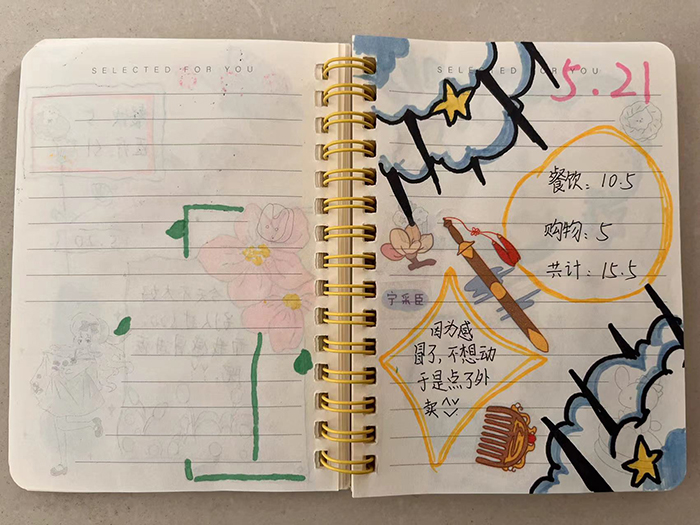 SELECTED FOR YOU
SELECTED FOR YOU
5.21
餐饮：10.5
购物：5
共计：15.5
宁采臣
因为感
冒了，不想动
于是点了外
卖